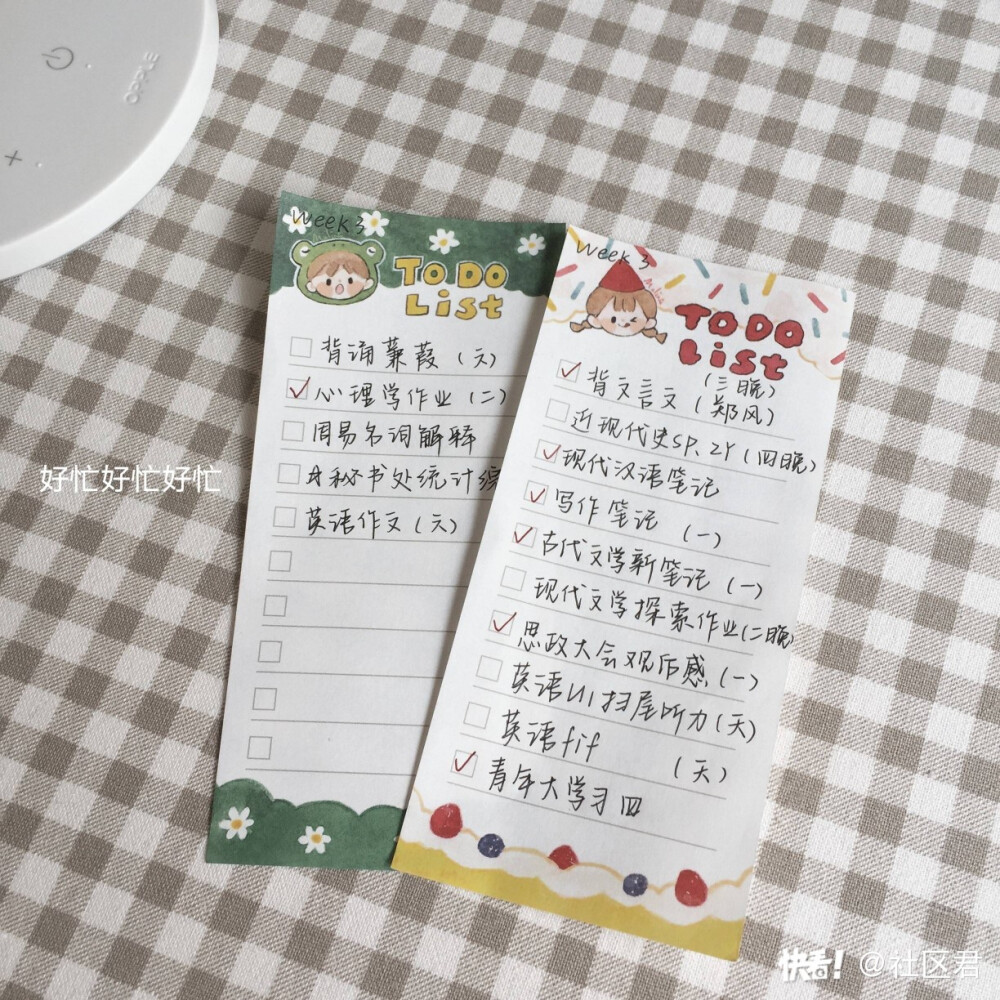 OPPLE
Week 3
TO DO
List
背诵蒹葭（天）
心理学作业（二）
周易名词解释
秘书处统计综
英语作文（天）
好忙好忙好忙
Week 3
TO DO
List
背文言文（郑风）
（三晚）
近现代史SP、ZY（四晚）
现代汉语笔记
写作笔记（一）
古代文学新笔记（一）
现代文学探索作业（二晚）
思政大会观后感（一）
英语U1扫尾听力（天）
英语fif（天）
青年大学习四
快看！@社区君